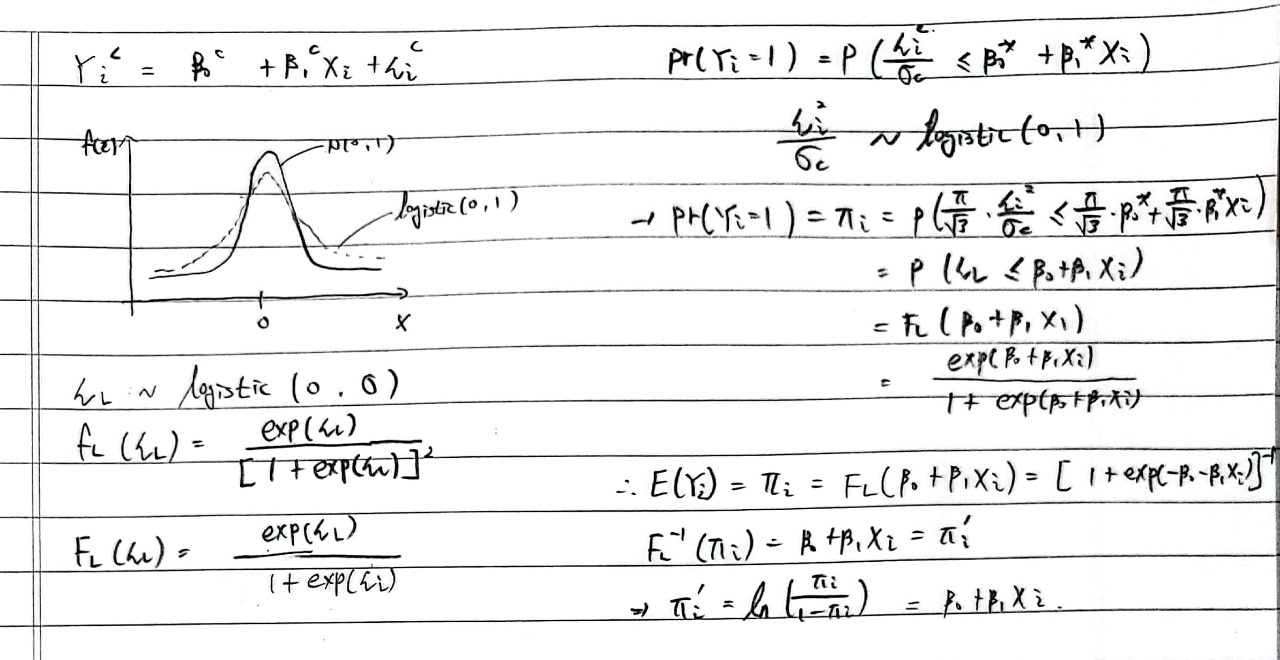 Yᵢᶜ = β₀ᶜ + β₁ᶜXᵢ + εᵢᶜ
f(ε)
N(0,1)
logistic(0,1)
0
X
ε_L ~ logistic (0,0)
f_L (ε_L) = exp(ε_L) / [1 + exp(ε_L)]²
F_L (ε_L) = exp(ε_L) / 1 + exp(ε_i)
pr(Yᵢ=1) = P (εᵢᶜ/σ_c ≤ β₀* + β₁*Xᵢ)
εᵢ²/σ_c ~ logistic(0,1)
→ pr(Yᵢ=1) = πᵢ = P(π/√3 · εᵢ²/σ_c ≤ π/√3 · β₀* + π/√3 · β₁*Xᵢ)
= P (ε_L ≤ β₀ + β₁Xᵢ)
= F_L (β₀ + β₁X₁)
= exp(β₀ + β₁Xᵢ) / 1 + exp(β₀ + β₁Xᵢ)
∴ E(Yᵢ) = πᵢ = F_L(β₀ + β₁Xᵢ) = [1 + exp(-β₀ - β₁Xᵢ)]⁻¹
F_L⁻¹(πᵢ) = β₀ + β₁Xᵢ = πᵢ′
⇒ πᵢ′ = ln (πᵢ/1-πᵢ) = β₀ + β₁Xᵢ.